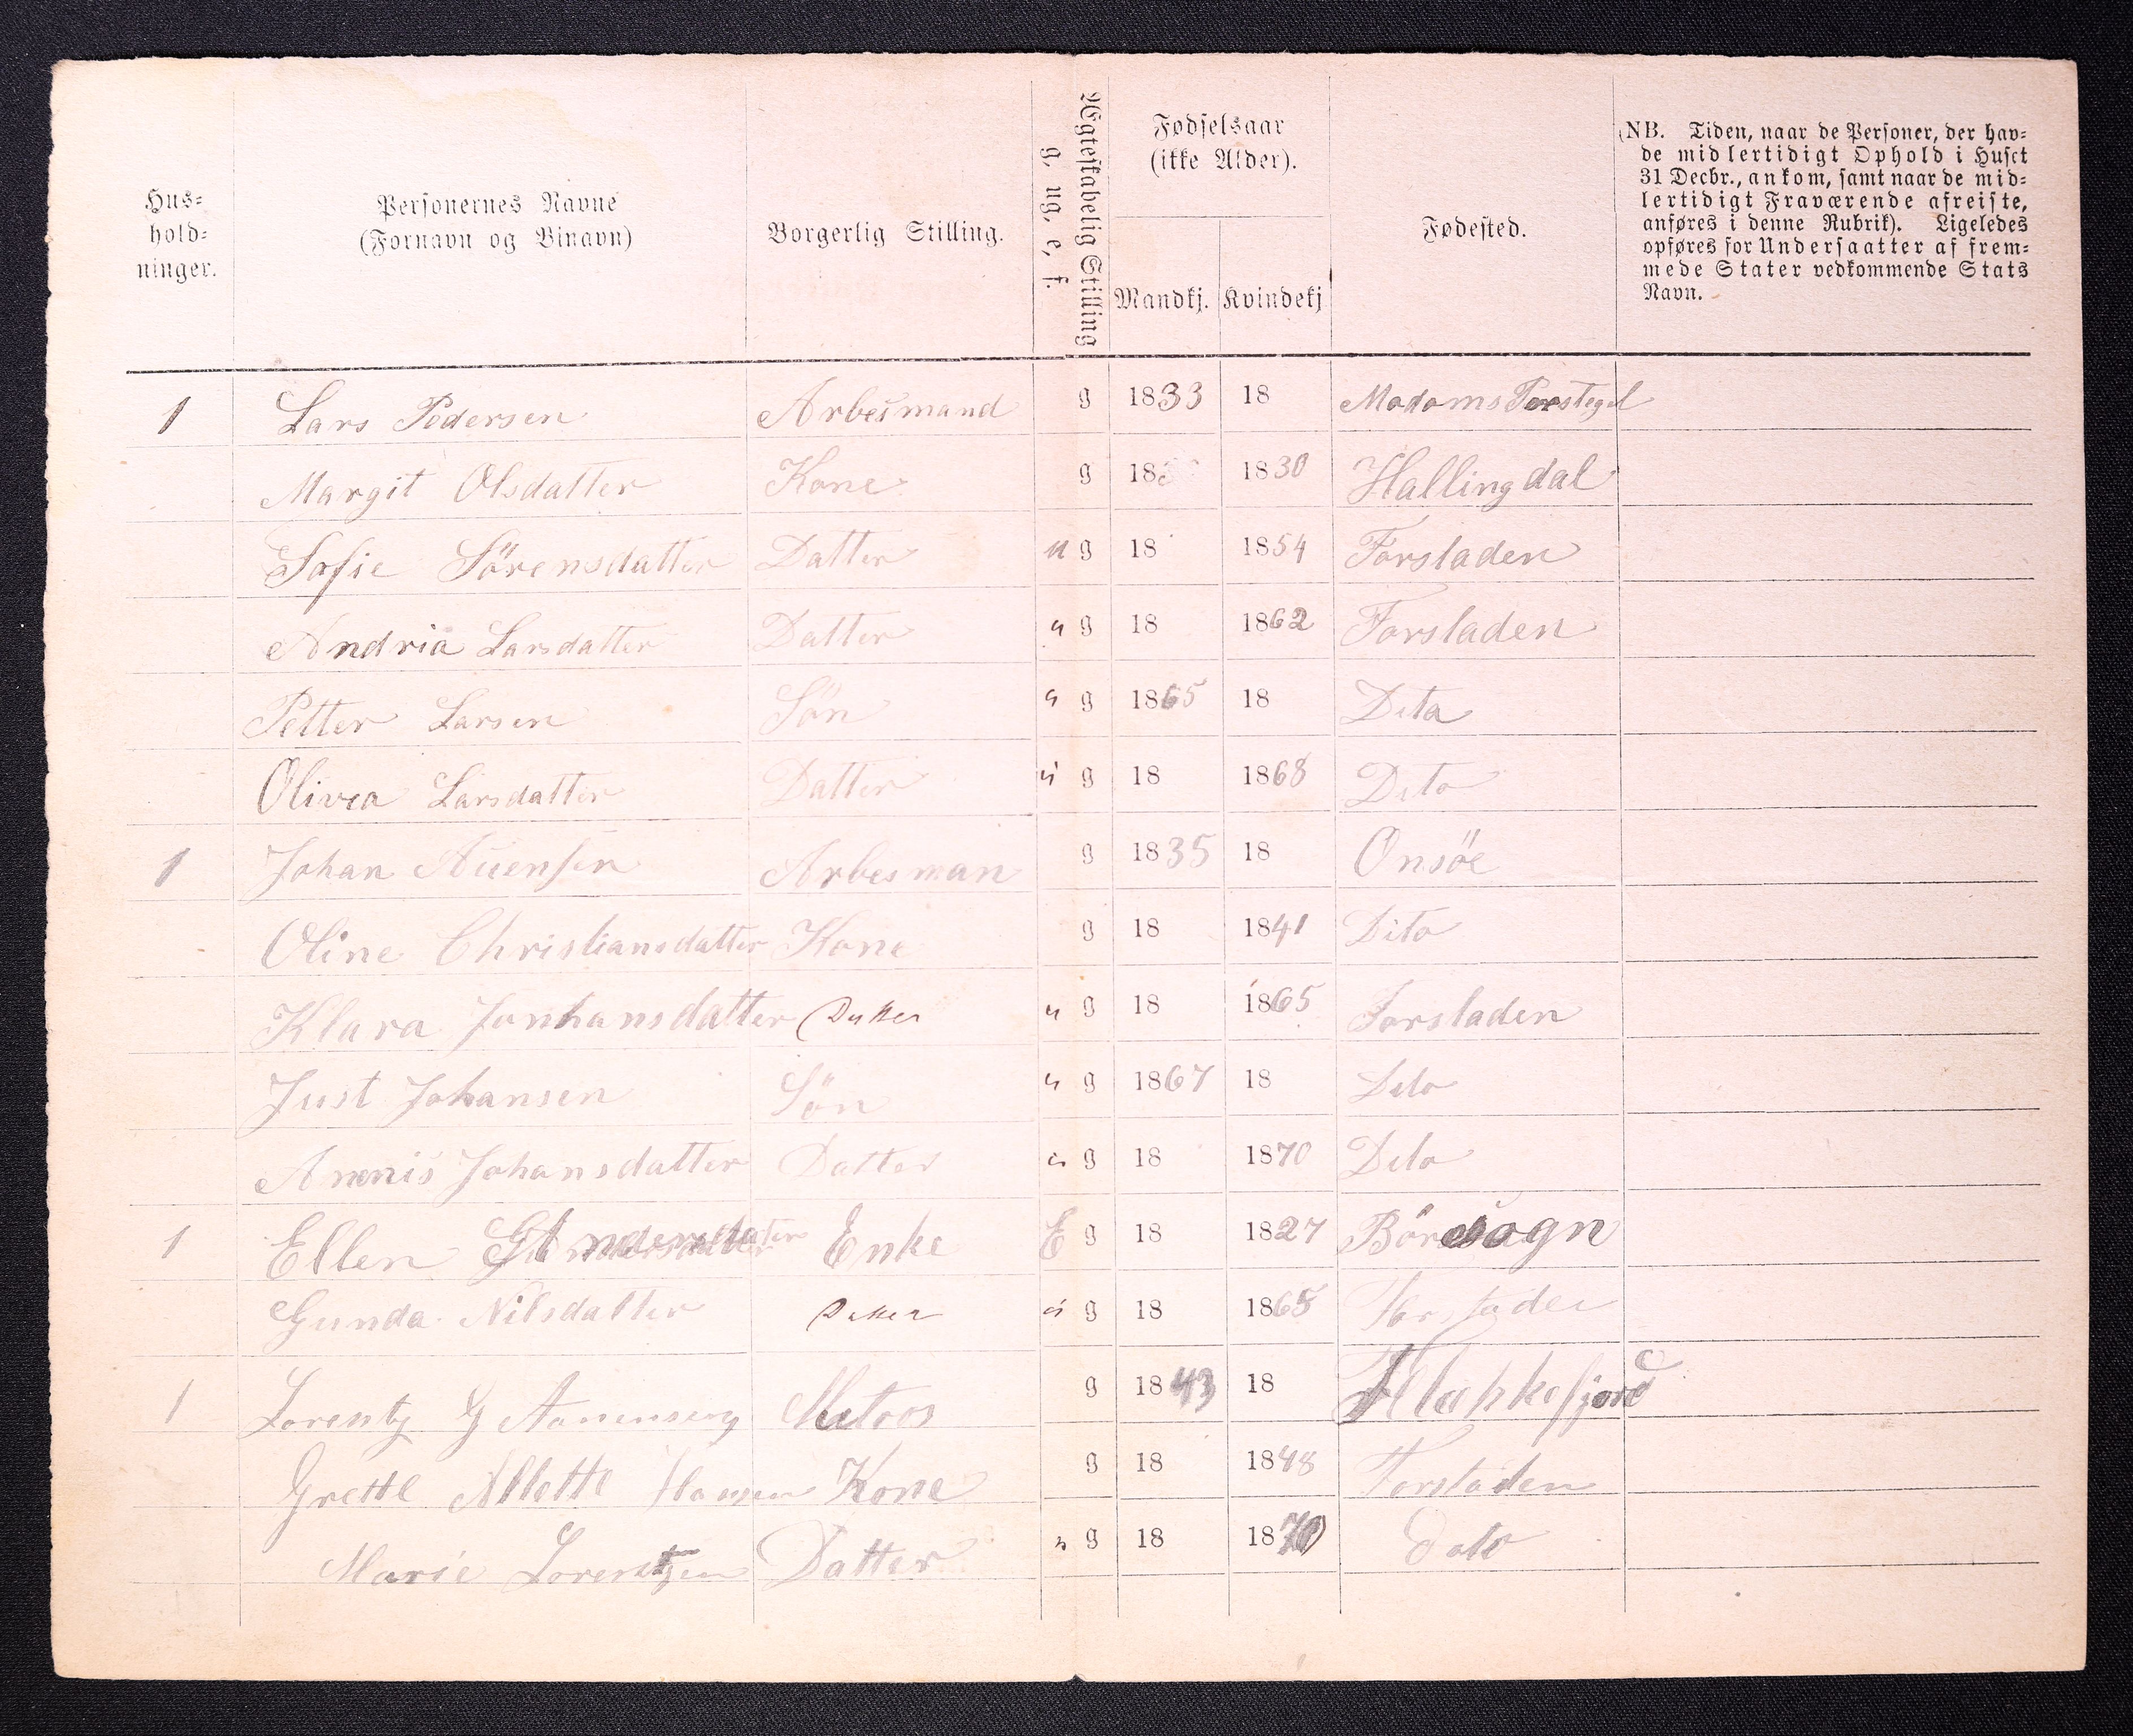 Hus-
hold-
ninger.
Personernes Navne
(Fornavn og Binavn)
Borgerlig Stilling.
Ægteskabelig Stilling
g, ug, e, f.
Fødselsaar
(ikke Alder).
Mandkj. Kvindekj
Fødested.
(NB. Tiden, naar de Personer, der hav-
de midlertidigt Ophold i Huset
31 Decbr., ankom, samt naar de mid-
lertidigt Fraværende afreiste,
anføres i denne Rubrik). Ligeledes
opføres for Undersaatter af frem-
mede Stater vedkommende Stats
Navn.
1 Lars Pedersen Arbeismand g 1833 18 Madams
Margit Olsdatter Kone g 18 1830 Hallingdal
Sofie Sörensdatter Datter u g 18 1854 Forsladen
Andria Larsdatter Datter u g 18 1862 Forsladen
Petter Larsen Sön u g 1865 18 Dito
Olivia Larsdatter Datter u g 18 1868 Dito
1 Johan Arbesman g 1835 18 Onsöe
Oline Christiansdatter Kone g 18 1841 Dito
Klara Jonhansdatter Datter u g 18 1865 Forsladen
Just Johansen Sön u g 1867 18 Dito
Johansdatter Datter u g 18 1870 Dito
1 Ellen Enke E g 18 1827
Gunda Nilsdatter Datter u g 18 1865 Forstaden
1 Lorentz Matros g 1843 18
Grette Kone g 18 1848 Forstaden
Marie Lorentzen Datter u g 18 1870 Dato